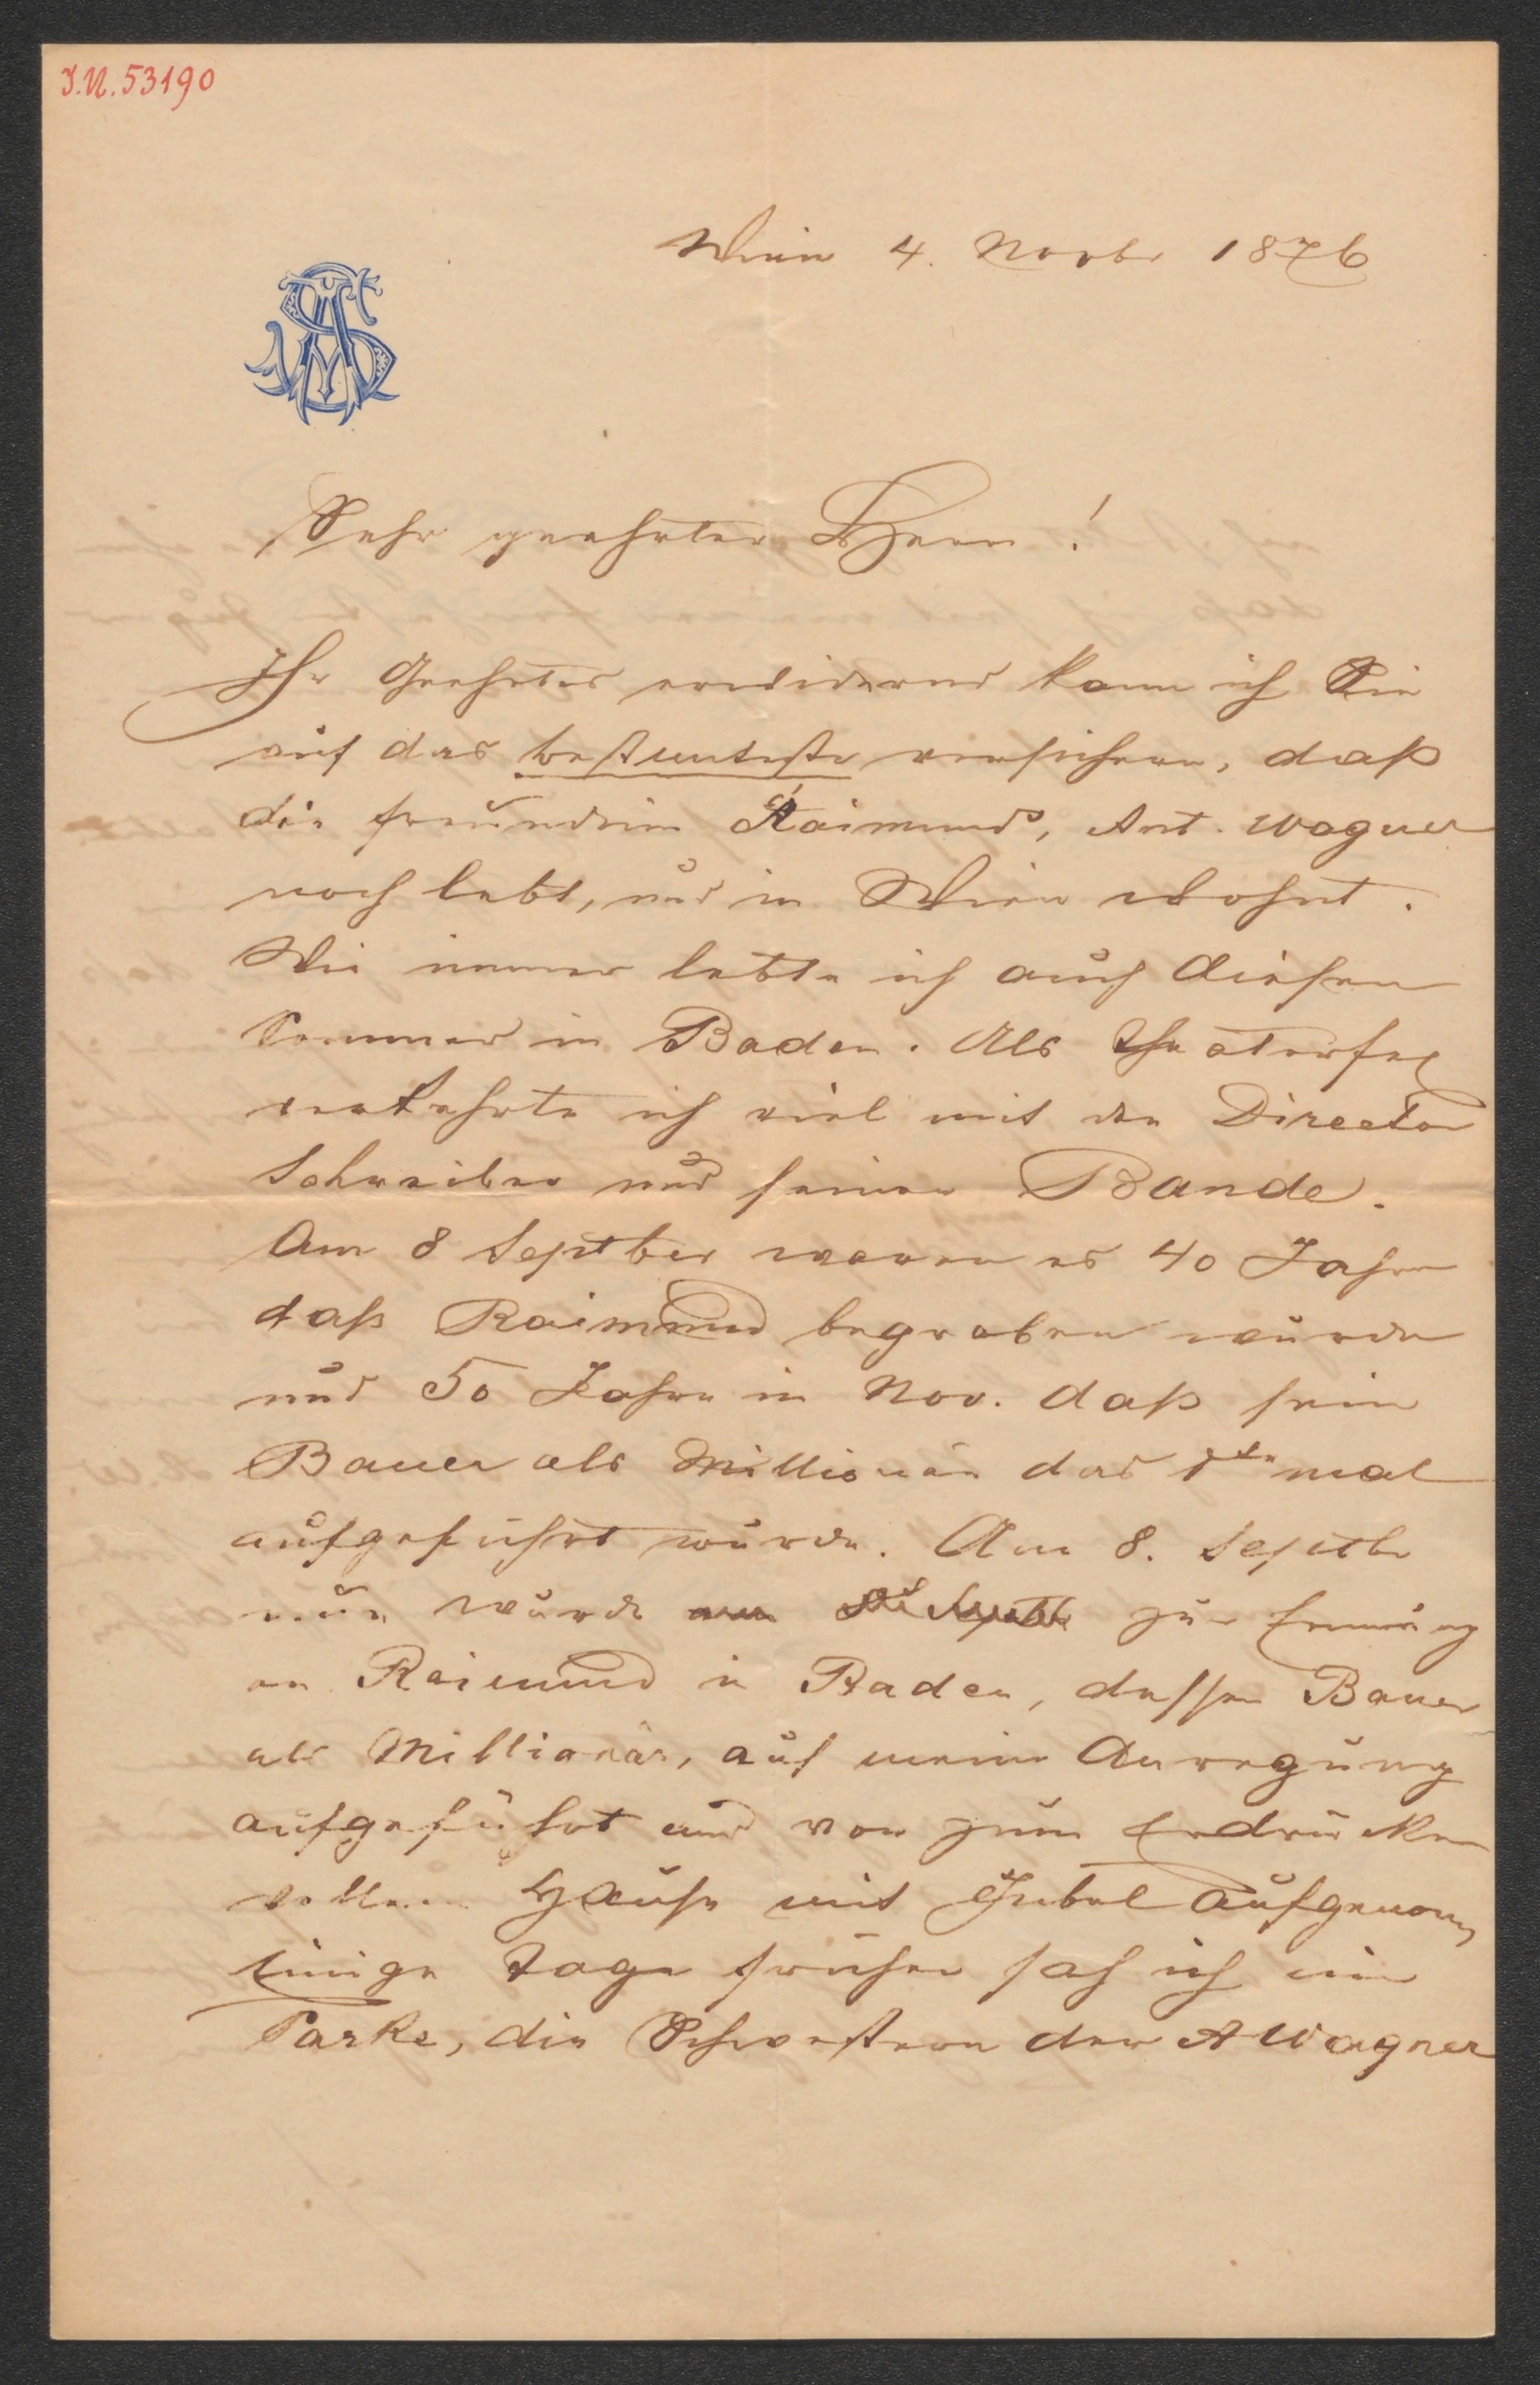 I.N. 53190
Wien 4. Novbr 1876
Sehr geehrter Herr!
Ihr Geehrtes erwidernd kann ich Sie
auf das bestimteste versichern, daß
die Freundin Raimunds, Ant. Wagner
noch lebt, und in Wien wohnt.
Wie immer lebte ich auch diesen
Sommer in Baden. Als Theaterfex
verkehrte ich viel mit den Director
Schreiber und seiner Bande.
Am 8 Septber waren es 40 Jahre
daß Raimund begraben wurde
und 50 Jahre in Nov. daß sein
Bauer als Millionär das 1te mal
aufgeführt wurde. Am 8. Septbr
nun wurde zur Erinnerung
an Raimund in Baden, dessen Bauer
als Millionär, auf meine Anregung
aufgeführt und von zum Erdrücken
vollen Hause mit Jubel aufgenom
Einige Tage früher sah ich im
Parke, die Schwestern der A Wagner